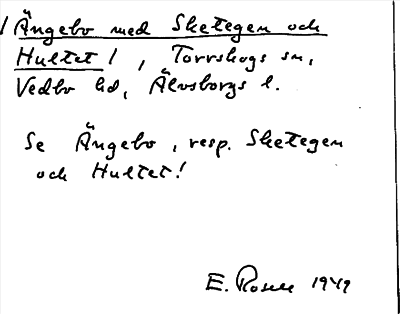 / Ängebo med Sketegen och
Hultet /, Torrskogs sn,
Vedbo hd, Älvsborgs l.
Se Ängebo, resp. Sketegen
och Hultet!
E. Rosell 1949